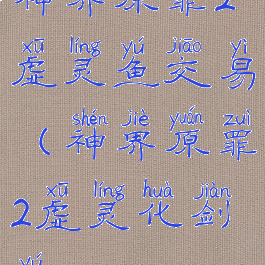 神界原罪2
xū líng yú jiāo yì
虚灵鱼交易
shén jiè yuán zuì
(神界原罪
xū líng huà jiàn
2虚灵化剑
yú